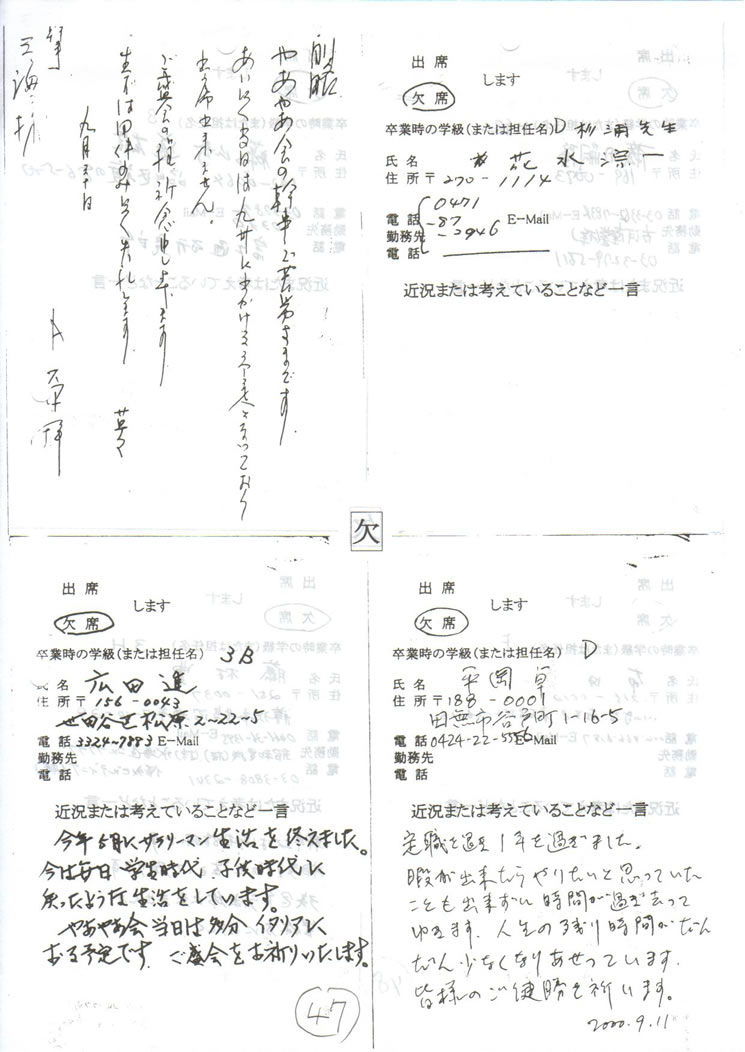 前略
やあやあ会の幹事ご苦労さまです。
あいにく当日は
出席出来ません。
ご盛会の程祈念申します
失札します
九月
出 席
します
欠 席
卒業時の学級(または担任名)D 杉浦先生
氏 名 花水淙一
住 所 〒 270-1114
電 話 0471
-87
-2946
E-Mail
勤務先
電 話
近況または考えていることなど一言
欠
出 席
します
欠 席
卒業時の学級(または担任名) 3B
氏 名 広田進
住 所 〒 156-0043
世田谷区松原2-22-5
電 話 3324-7883 E-Mail
勤務先
電 話
近況または考えていることなど一言
今年5月にサラリーマン生活を終えました。
今は毎日 学生時代、子供時代に
戻ったような生活をしています。
やあやあ会当日は多分イタリアに
おる予定です。ご盛会をお祈りいたします。
出 席
します
欠 席
卒業時の学級(または担任名) D
氏 名 平岡 卓
住 所 〒188-0001
田無市谷戸町1-16-5
電 話 0424-22-5556 E-Mail
勤務先
電 話
近況または考えていることなど一言
定職を退き1年を過ぎました。
暇が出来たらやりたいと思っていた
ことも出来ずに時間が過ぎ去って
ゆきます。人生の残り時間がだん
だん少なくなりあせっています。
皆様のご健勝を祈います。
2000.9.11
47